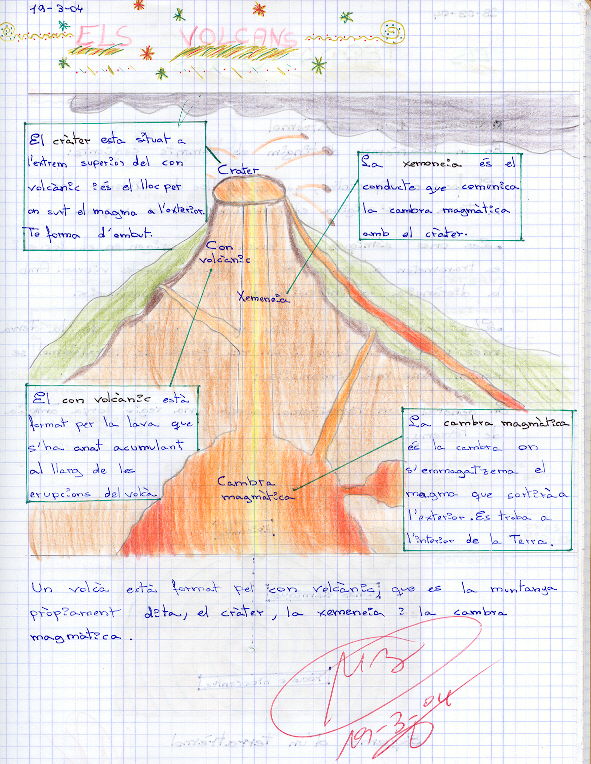 19-3-04
ELS VOLCANS
El cràter esta situat a
l'extrem superior del con
volcànic i és el lloc per
on surt el magma a l'exterior.
Té forma d'embut.
Crater
La xemeneia és el
conducte que comunica
la cambra magmàtica
amb el cràter.
Con
volcànic
Xemeneia
El con volcànic està
format per la lava que
s'ha anat acumulant
al llarg de les
erupcions del volcà
La cambra magmàtica
és la cambra on
s'emmagatzema el
magma que sortirà a
l'exterior. Es troba a
l'interior de la Terra.
Cambra
magmàtica
Un volcà està format pel con volcànic, que es la muntanya
pròpiament dita, el cràter, la xemeneia i la cambra
magmàtica.
MB
19-3-04